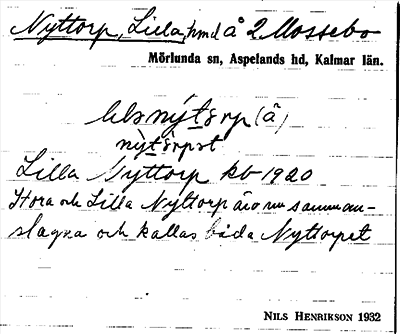 Nyttorp, Lilla, hmd å 2 Mossebo
Mörlunda sn, Aspelands hd, Kalmar län.
(å)
Lilla Nyttorp kb 1920
Stora och Lilla Nyttorp äro nu samman-
slagna och kallas båda Nyttorpet
NILS HENRIKSON 1932